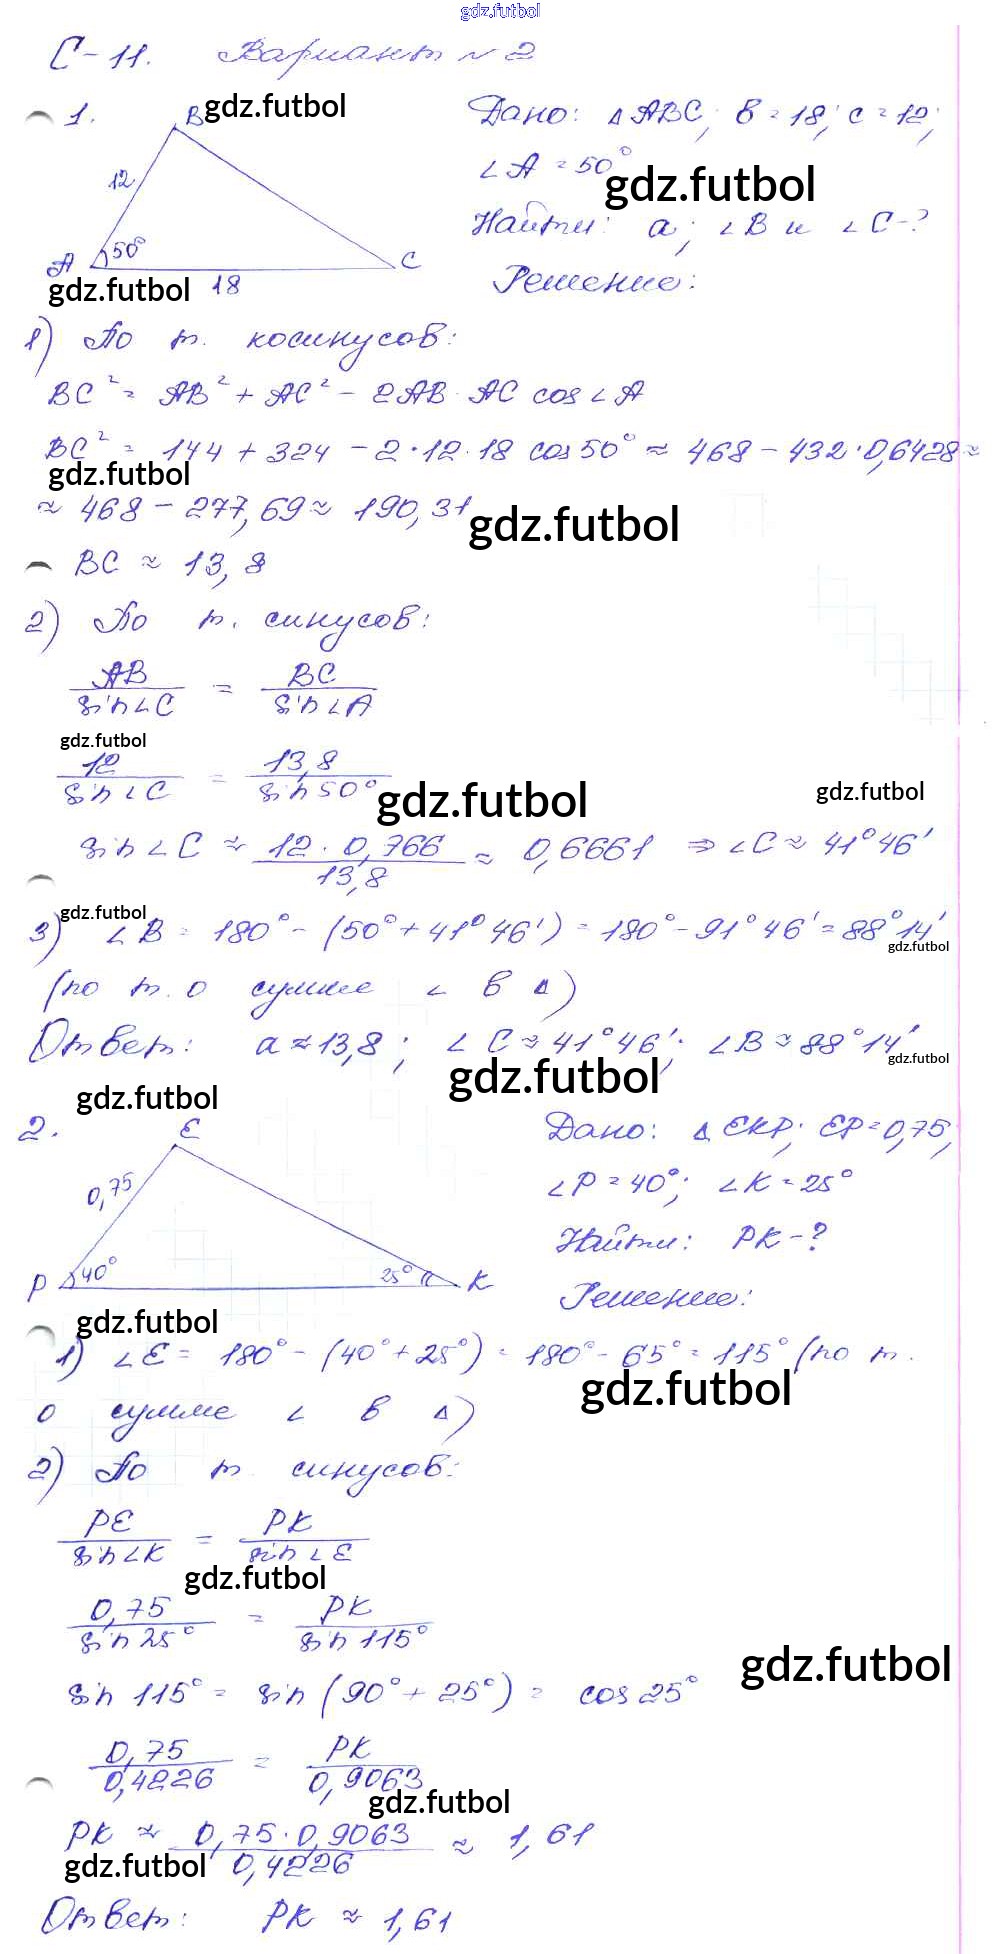 gdz.futbol
С-11. Вариант №2
1. B gdz.futbol Дано: Δ ABC; b = 18; c = 12;
12 ∠A = 50°
gdz.futbol
Найти: a; ∠B и ∠C-?
A 50° C
gdz.futbol 18 Решение:
1) По т. косинусов:
BC² = AB² + AC² - 2AB · AC cos∠A
BC² = 144 + 324 - 2·12·18 cos50° ≈ 468 - 432·0,6428 ≈
gdz.futbol
≈ 468 - 277,69 ≈ 190,31
gdz.futbol
BC ≈ 13,8
2) По т. синусов:
AB/sin∠C = BC/sin∠A
gdz.futbol
12/sin∠C = 13,8/sin50°
gdz.futbol gdz.futbol
sin∠C ≈ 12·0,766/13,8 ≈ 0,6661 ⇒ ∠C ≈ 41°46'
gdz.futbol
3) ∠B = 180° - (50° + 41°46') = 180° - 91°46' = 88°14'
gdz.futbol
(по т. о сумме ∠ в Δ)
Ответ: a ≈ 13,8; ∠C ≈ 41°46'; ∠B ≈ 88°14'
gdz.futbol gdz.futbol
gdz.futbol
2. E Дано: Δ EKP; EP = 0,75;
0,75 ∠P = 40°; ∠K = 25°
Найти: PK-?
P 40° 25° K
Решение:
gdz.futbol
1) ∠E = 180° - (40° + 25°) = 180° - 65° = 115° (по т.
gdz.futbol
о сумме ∠ в Δ)
2) По т. синусов:
PE/sin∠K = PK/sin∠E
gdz.futbol
0,75/sin25° = PK/sin115°
gdz.futbol
sin115° = sin(90° + 25°) = cos25°
0,75/0,4226 = PK/0,9063
gdz.futbol
PK ≈ 0,75·0,9063/0,4226 ≈ 1,61
gdz.futbol
Ответ: PK ≈ 1,61